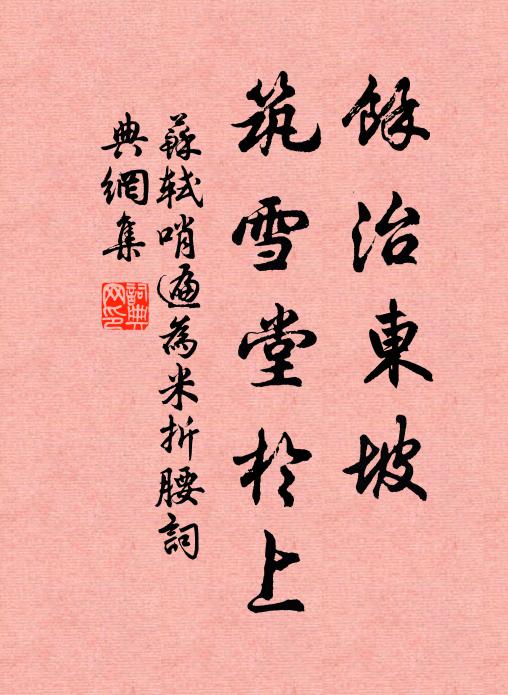 餘治東坡
筑雪堂於上
蘇軾哨遍為米折腰詞
典網集
詞典网印